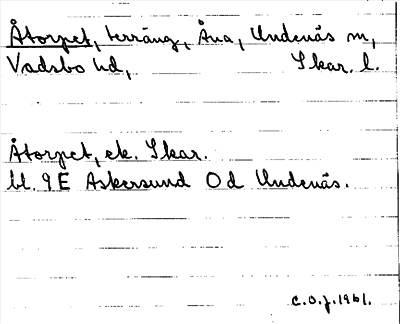 Åtorpet, terräng, Åna, Undenäs sn,
Vadsbo hd, Skar. l.
Åtorpet, ek. Skar.
bl. 9E Askersund Od Undenäs.
C.O.J. 1961.